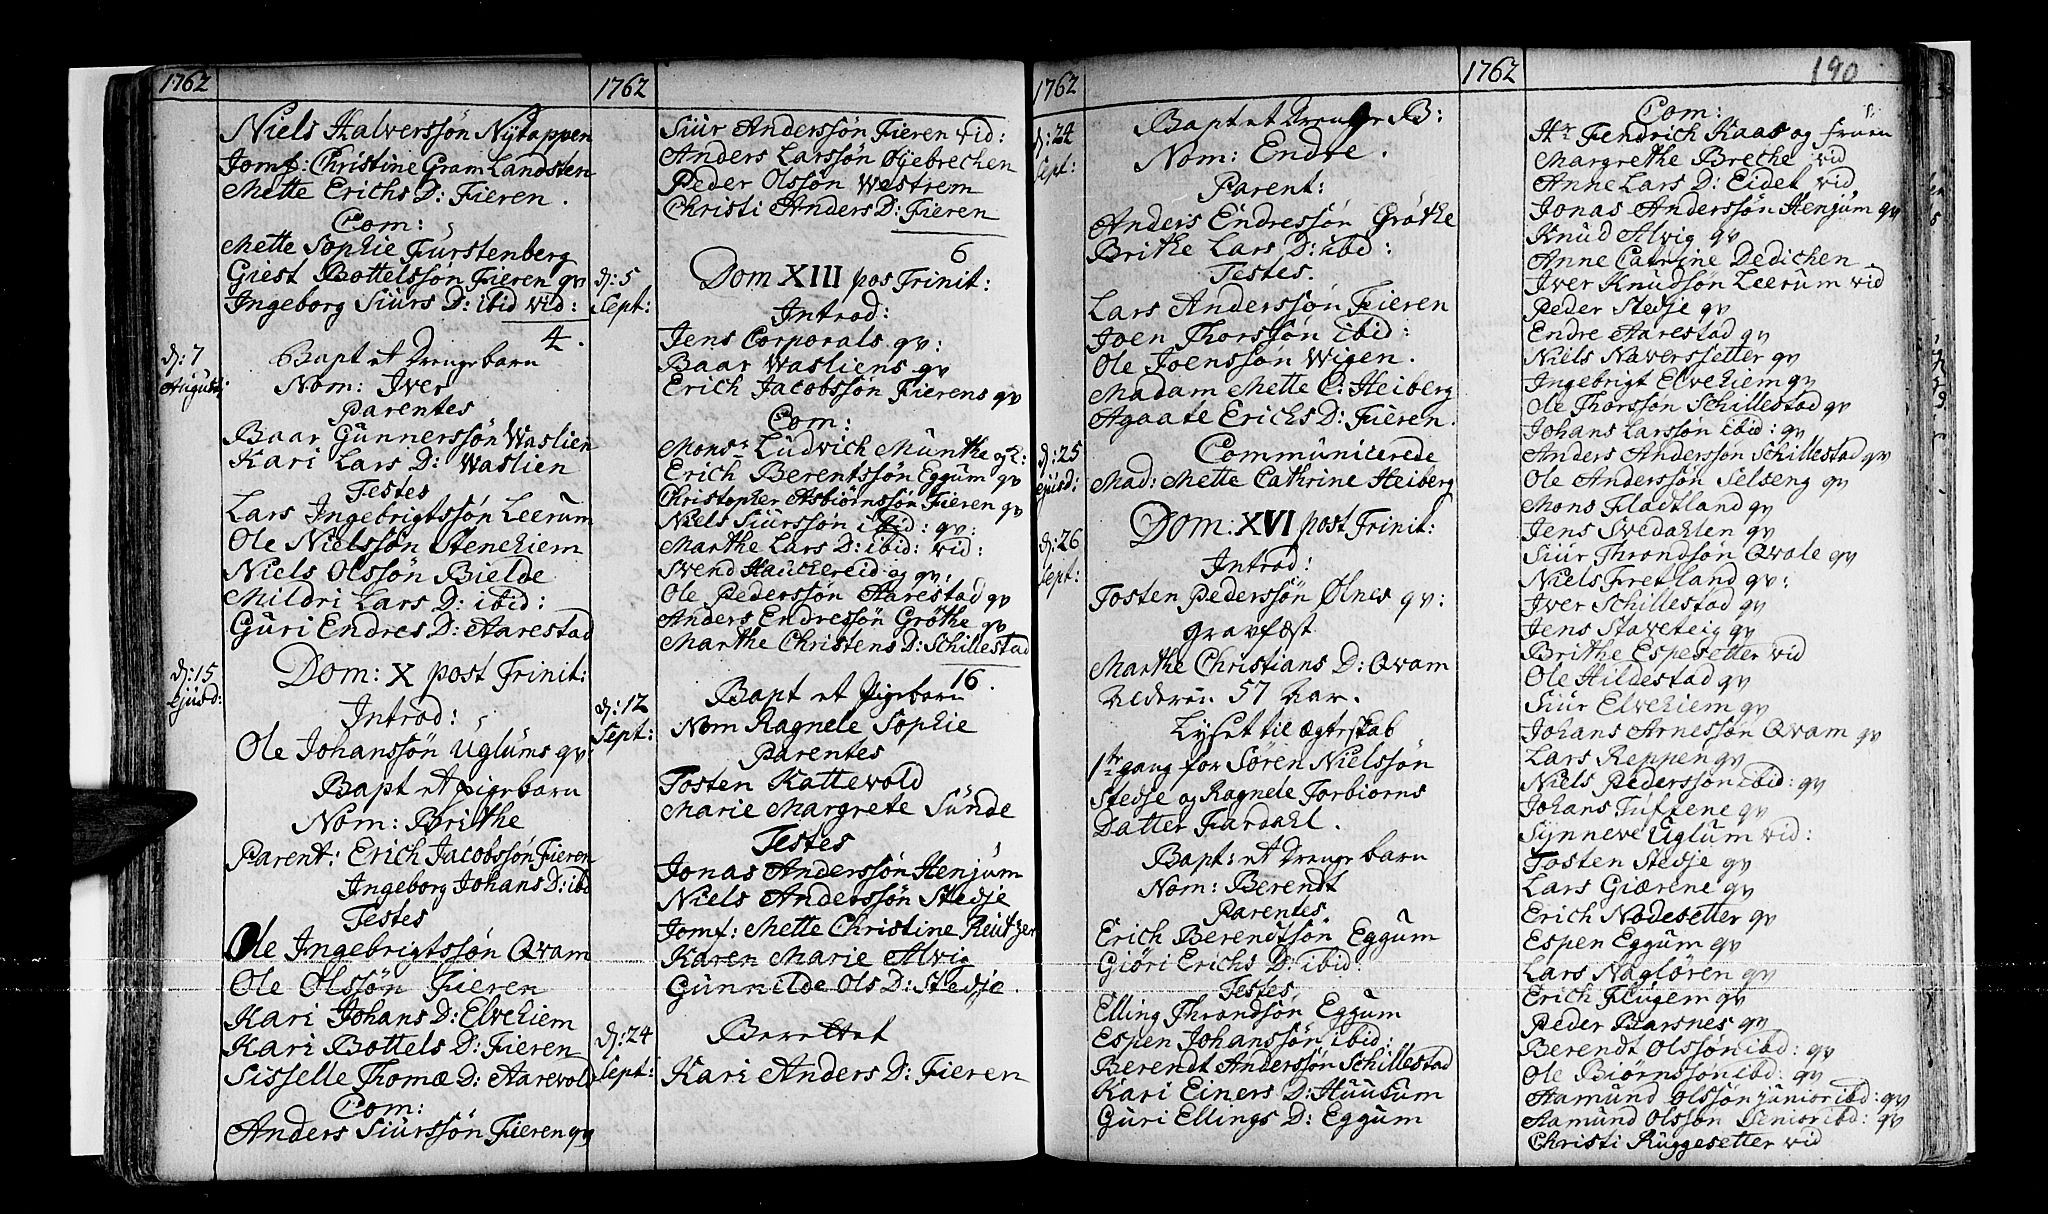 1762
Niels Halverssön Nÿtappen
Jomf: Christine Gram Landsten
Mette Erichs D: Fieren.
Com:
Mette Sophie Fürstenberg
Giest Bottelssön Fieren qv
Ingeborg Siurs D: ibid vid:
4.
d: 7 Augusti
Bapt et Drengebarn
Nom: Iver
Parentes
Baar Günnerssön Waslien
Kari Lars D: Waslien
Testes
Lars Ingebrigtssön Leerum
Ole Nielssön Stenehiem
Niels Olssön Bielde
Mildri Lars D: ibid:
Guri Endres D: Aarestad
d: 15 ejusd:
Dom: X post Trinit:
Introd:
Ole Johanssön Uglums qv
Bapt et pigebarn
Nom: Brithe
Parent: Erich Jacobssön Fieren
Ingeborg Johans D: ibd
Testes
Ole Ingebrigtssön Qvam
Ole Olssön Fieren
Kari Johans D: Elvehiem
Kari Bottels D: Fieren
Sisselle Thomæ D: Aarevold
Com:
Anders Siurssön Fieren qv
1762
Siur Anderssön Fieren vid:
Anders Larssön Öyebrechen
Peder Olssön Westrem
Christi Anders D: Fieren
6
d: 5 Sept:
Dom XIII pos Trinit:
Introd:
Jens Corporals qv:
Baar Wasliens qv
Erich Jacobssön Fierens qv
Com:
Monsr Ludvich Munthe og K:
Erich Berentssön Eggum qv
Christopher Asbiörnssön Fieren qv
Niels Siurssön ibid: qv:
Marthe Lars D: ibid: vid:
Svend Hauchereid qv:
Ole Pederssön Aarestad qv
Anders Endressön Gröthe qv
Marthe Christens D: Schillestad
16.
d: 12 Sept:
Bapt et Pigebarn
Nom Ragnele Sophie
Parentes
Tosten Kattevold
Marie Margrete Sünde
Testes
Jonas Anderssön Henjum
Niels Anderssön Stedje
Jomf: Mette Christine Reutzer
Karen Marie Alvig
Gunnilde Ols D: Stedje.
d: 24 Sept:
Berettet
Kari Anders D: Fieren
1762
d: 24 Sept:
Bapt et Drenge B:
Nom: Endre.
Parent:
Anders Endressön Gröthe
Brithe Lars D: ibd:
Testes.
Lars Anderssön Fieren
Joen Thorssön ibid:
Ole Joenssön Wigen.
Madam Mette C: Heiberg
Agaate Erichs D: Fieren.
d: 25 ejusd:
Communicerede
Mad: Mette Cathrine Heiberg
d: 26 Sept:
Dom: XVI post Trinit:
Introd:
Tosten Pederssön Ölnes qv:
gravfæst
Marthe Christians D: Qvam
Alderen 57 Aar.
Lyset til Ægteskab
1te gang for Sören Nielssön
Stedje og Ragnele Torbiorns
Datter Fardahl.
Bapt: et Drenge barn
Nom: Berendt
Parentes.
Erich Berendtsön Eggum
Giöri Erichs D: ibid:
Testes
Elling Throndsön Eggum
Espen Johanssön ibid:
Berendt Anderssön Schillestad
Kari Einers D: Huusum
Guri Ellings D: Eggum
1762
190
Com:
Hr Fendrich Kaas og fruen
Margrethe Breche vid
Anne Lars D: Eidet vid,
Jonas Anderssön Henjum qv
Knud Alvig qv
Anne Catrine Dedichen
Iver Knudsön Leerum vid
Peder Stedje qv
Endre Aarestad qv
Niels Naverssetter qv
Ingebrigt Elvehiem qv
Ole Thorssön Schillestad qv
Johans Larssön ibid: qv
Anders Anderssön Schillestad qv
Ole Anderssön Selseng qv
Mons Fladtland qv
Jens Svedahlen qv
Siur Throndsön Qvale qv
Niels Fretland qv:
Iver Schillestad qv
Jens Staveteig qv
Brithe Espesetter vid
Ole Hildestad qv
Siur Elvehiem qv
Johans Arnessön Qvam qv
Lars Reppen qv
Niels Pederssön ibid: qv
Johans Tuftene qv
Synneve Uglum vid:
Tosten Stedje qv
Lars Giærene qv
Erich Nodesetter qv
Espen Eggum qv
Lars Naglören qv
Erich Flugem qv
Peder Barsnes qv
Berendt Olssön ibd: qv
Ole Biörnssön ibd: qv
Aamund Olssön junior ibd: qv
Aamund Olssön Senior ibd: qv
Christi Ruggesetter vid